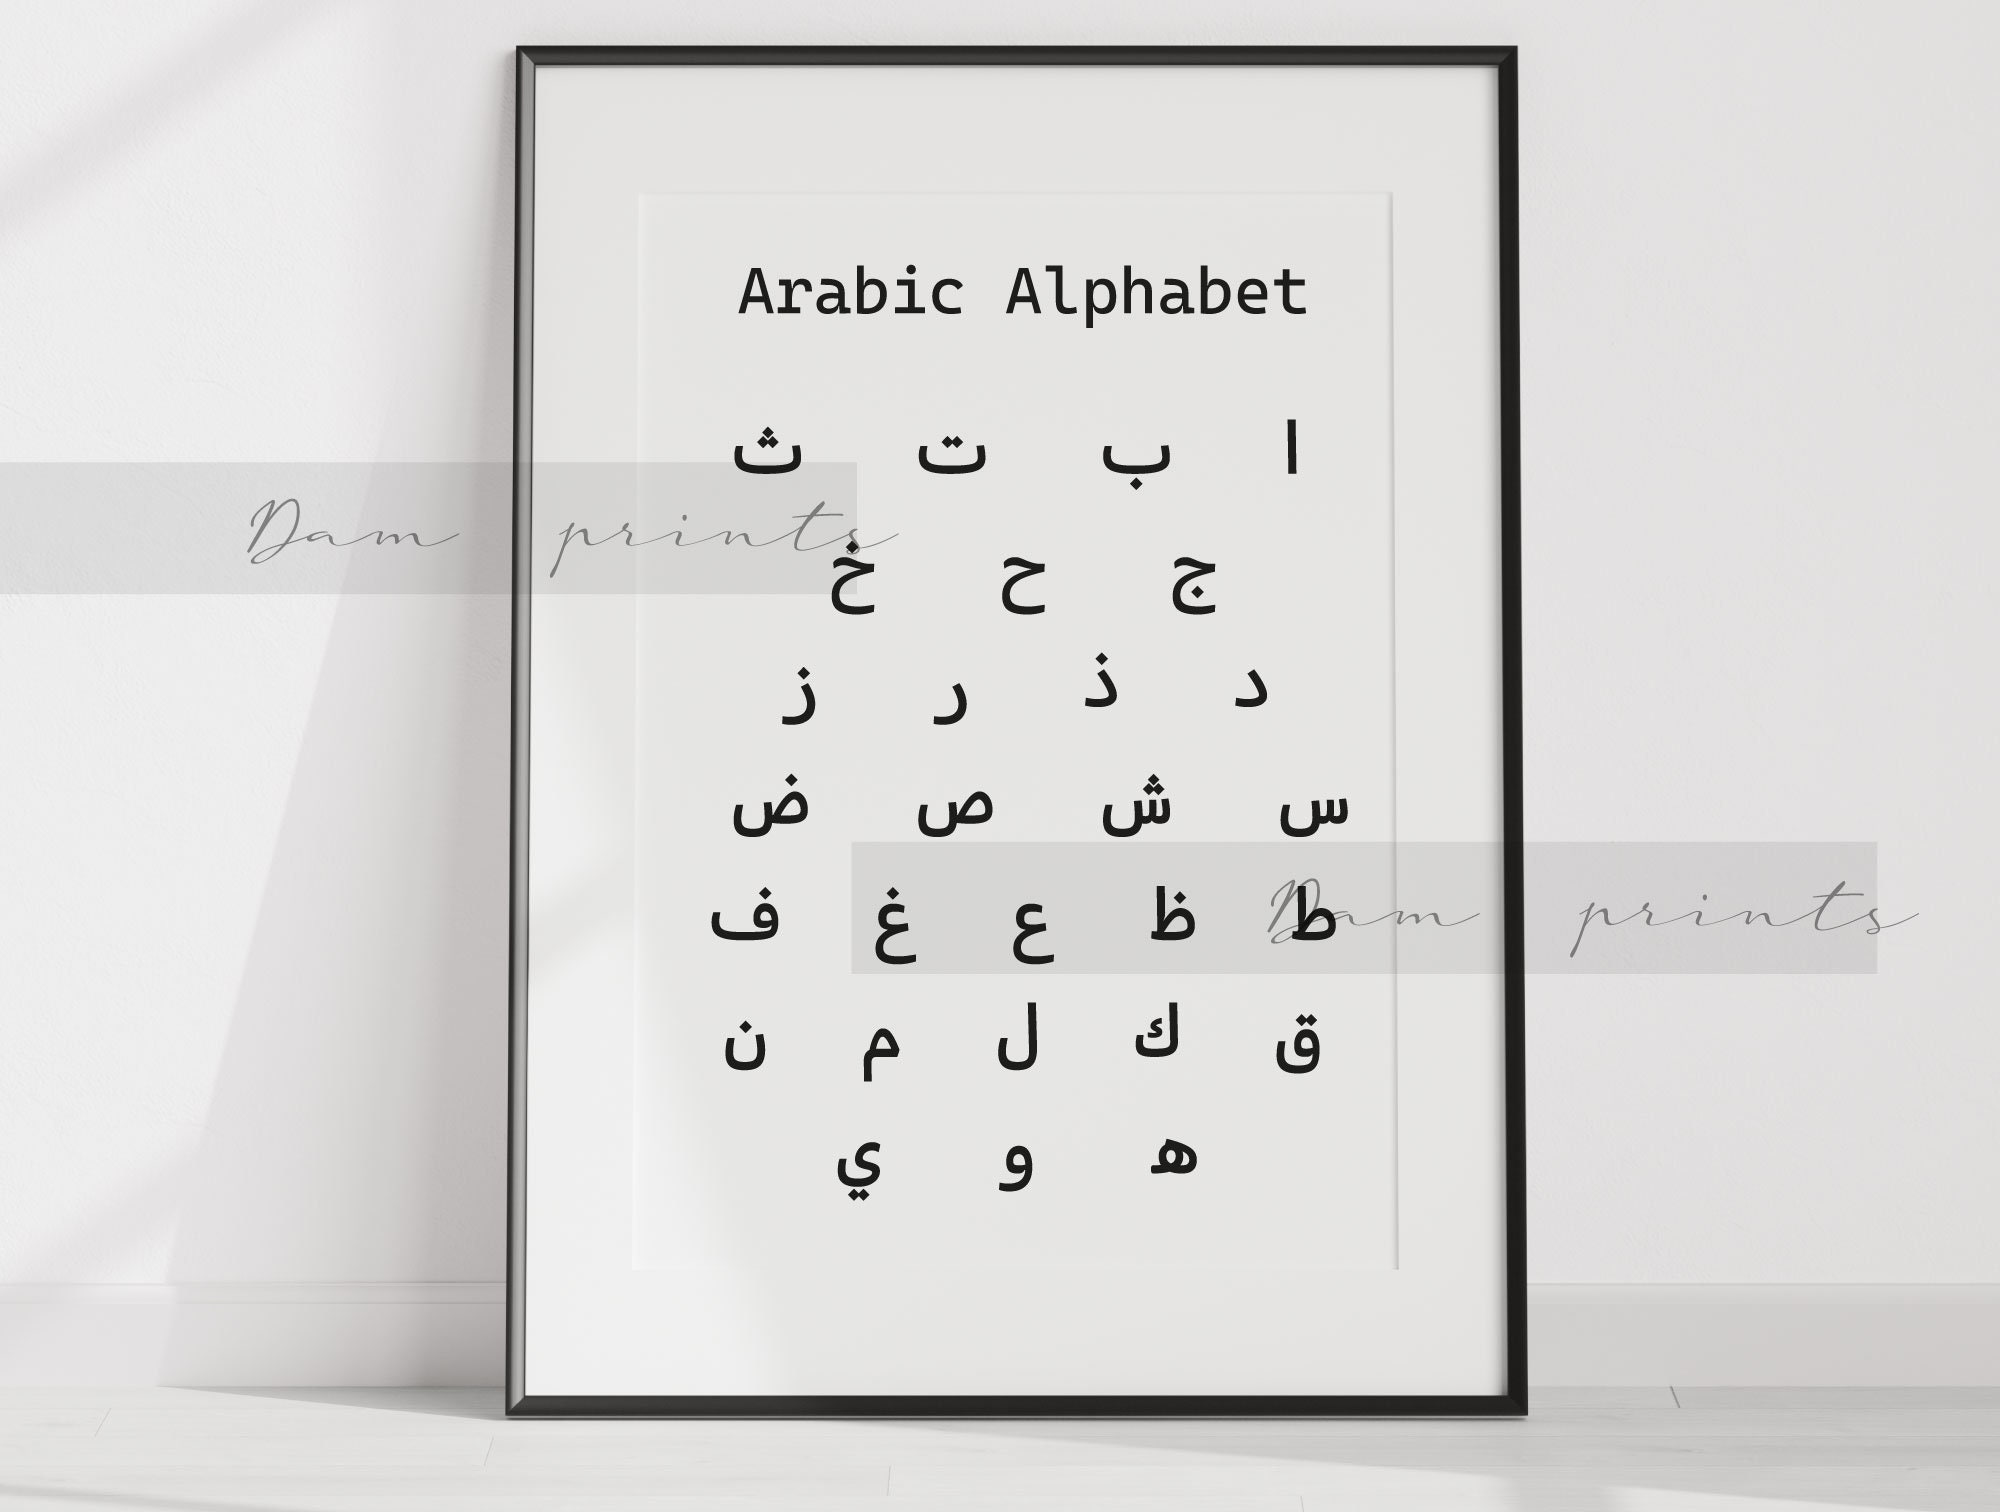 Arabic Alphabet
ا ب ت ث
Dam prints
ج ح خ
د ذ ر ز
س ش ص ض
ط ظ ع غ ف
Dam prints
ق ك ل م ن
ه و ي